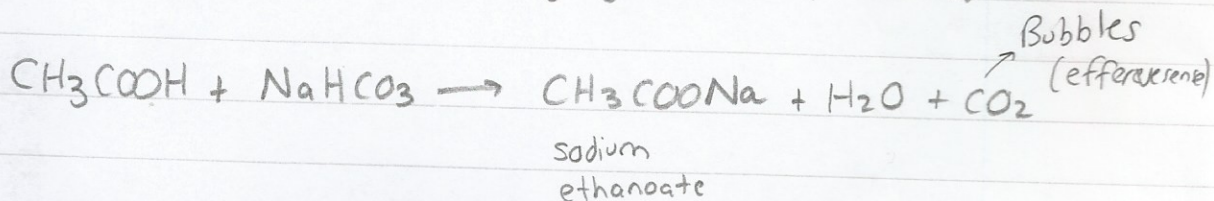 Bubbles
(effervesene)
CH3COOH + NaHCO3 → CH3COONa + H2O + CO2
sodium
ethanoate